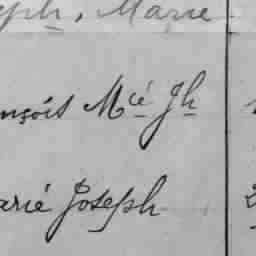 eph, Marie
nçois Mcié Jh
arié Joseph
2